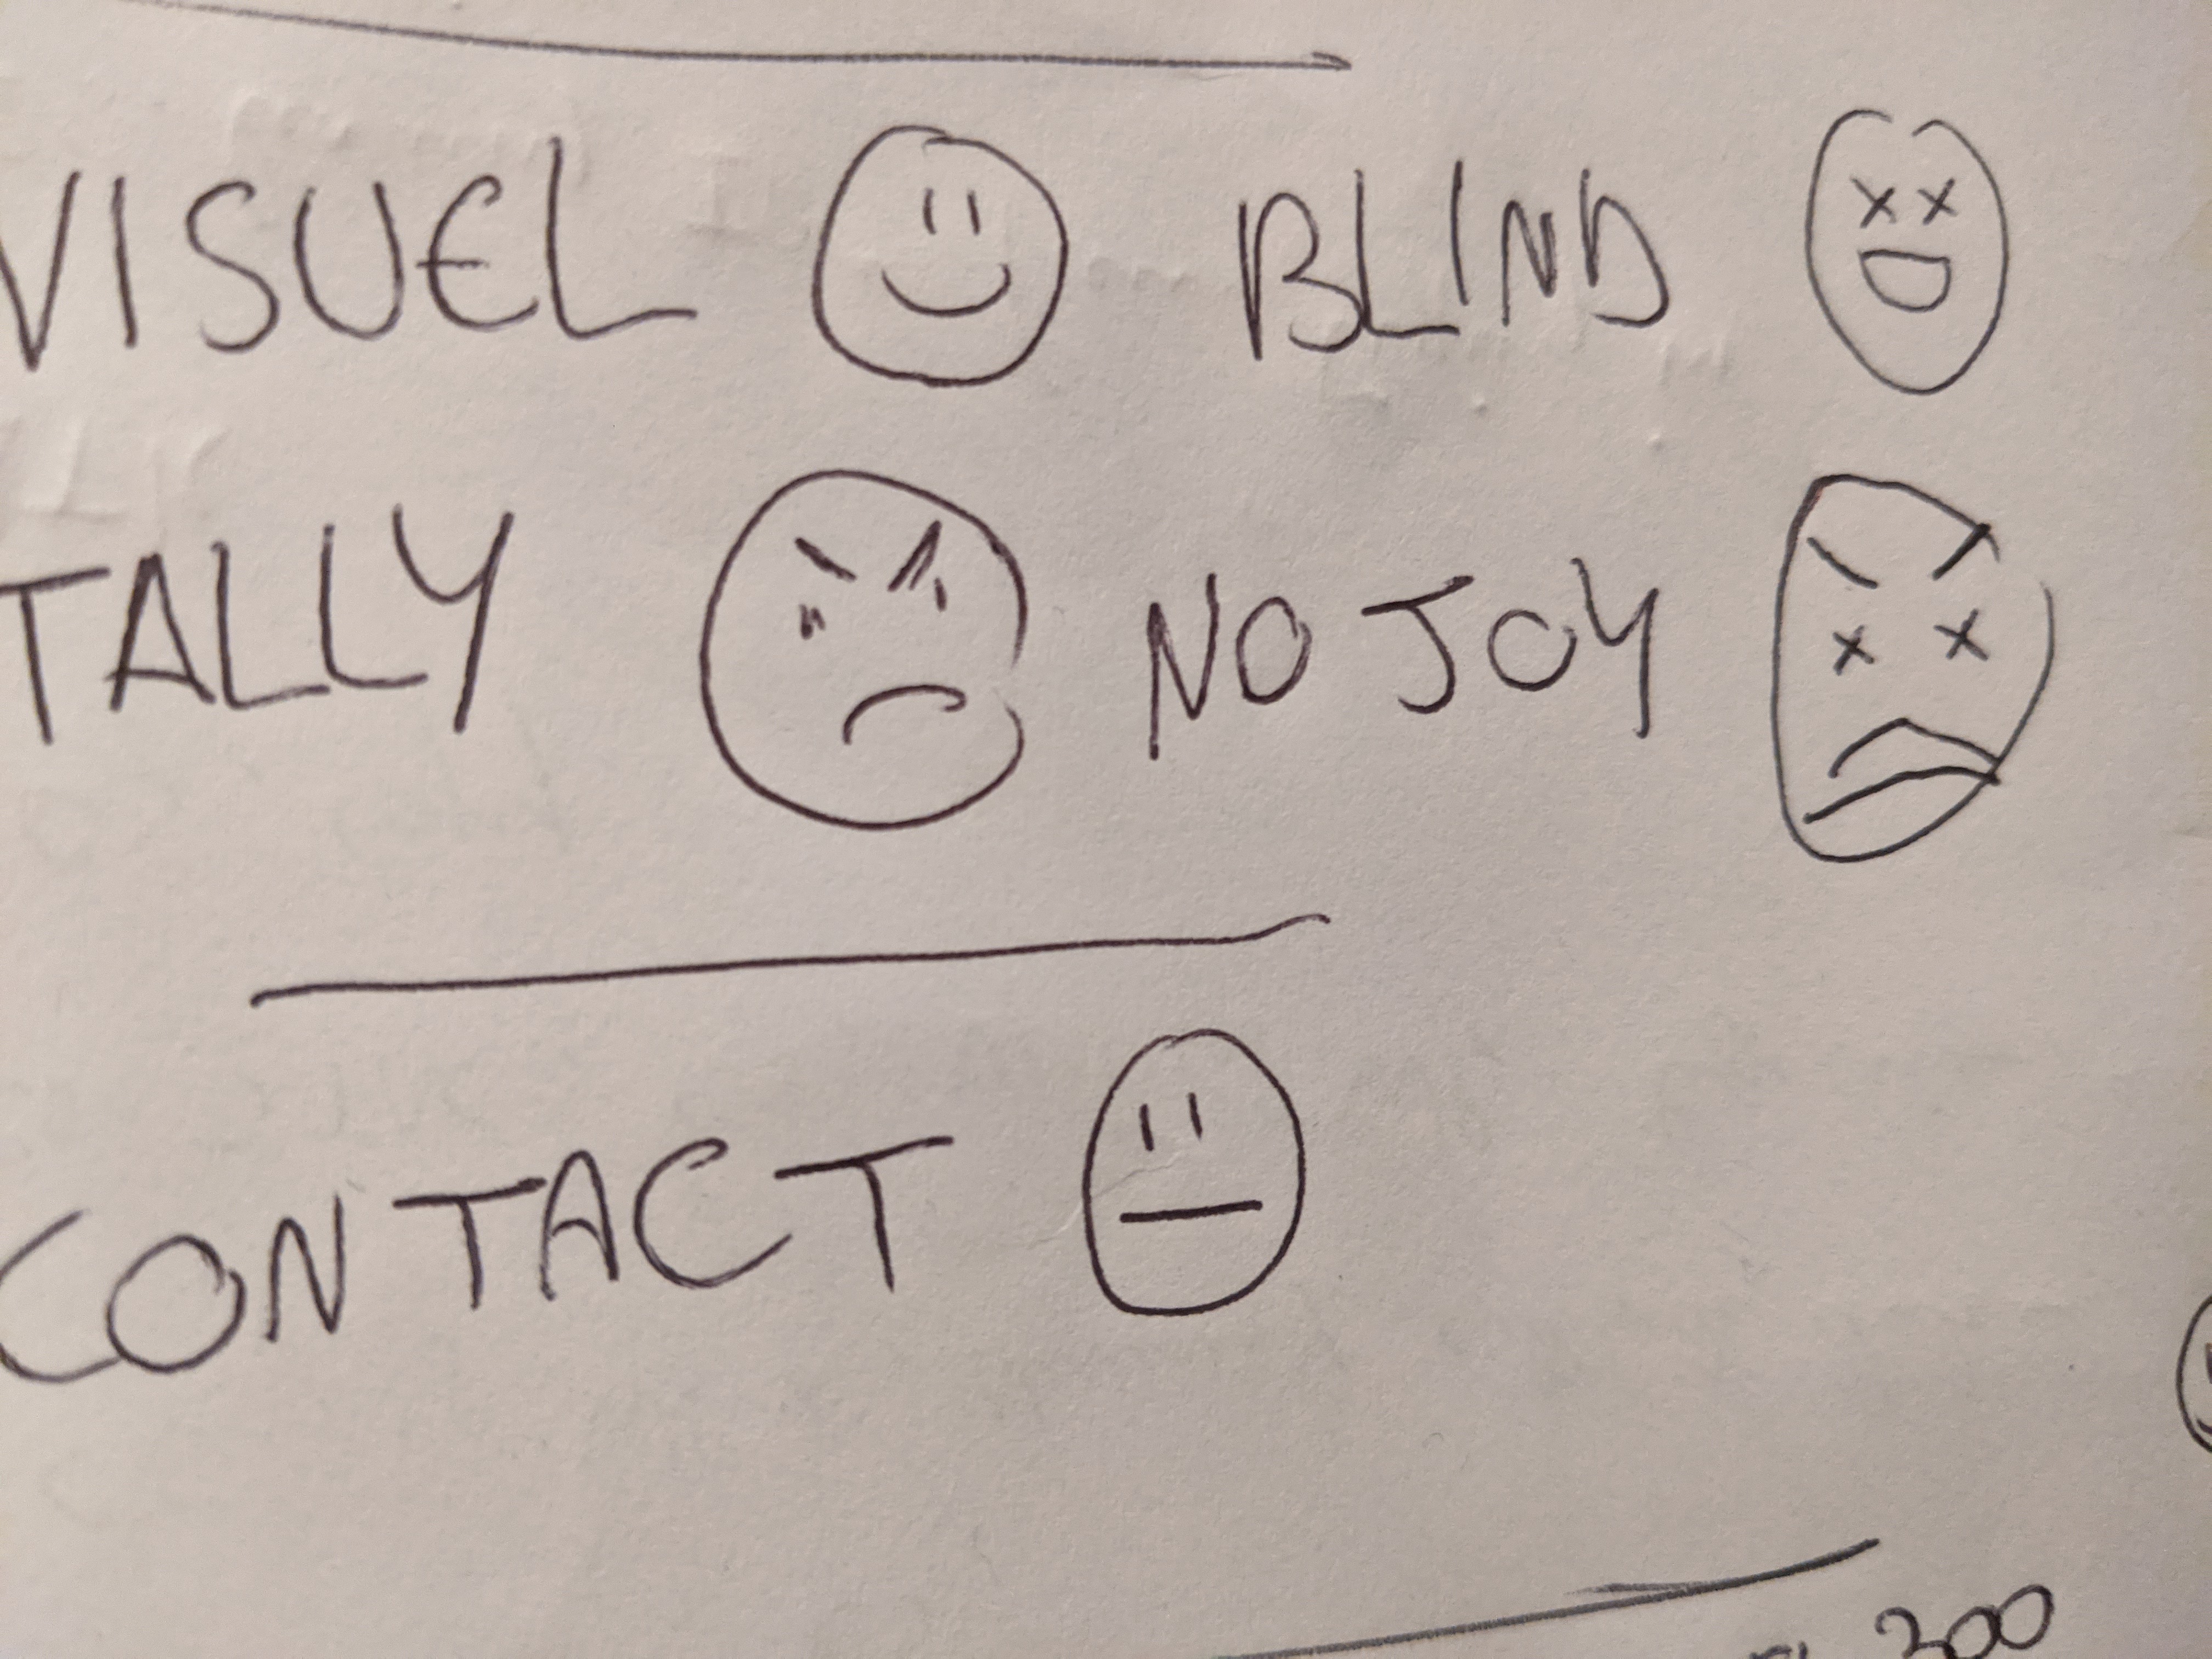 VISUEL BLIND
TALLY NO JOY
CONTACT
300